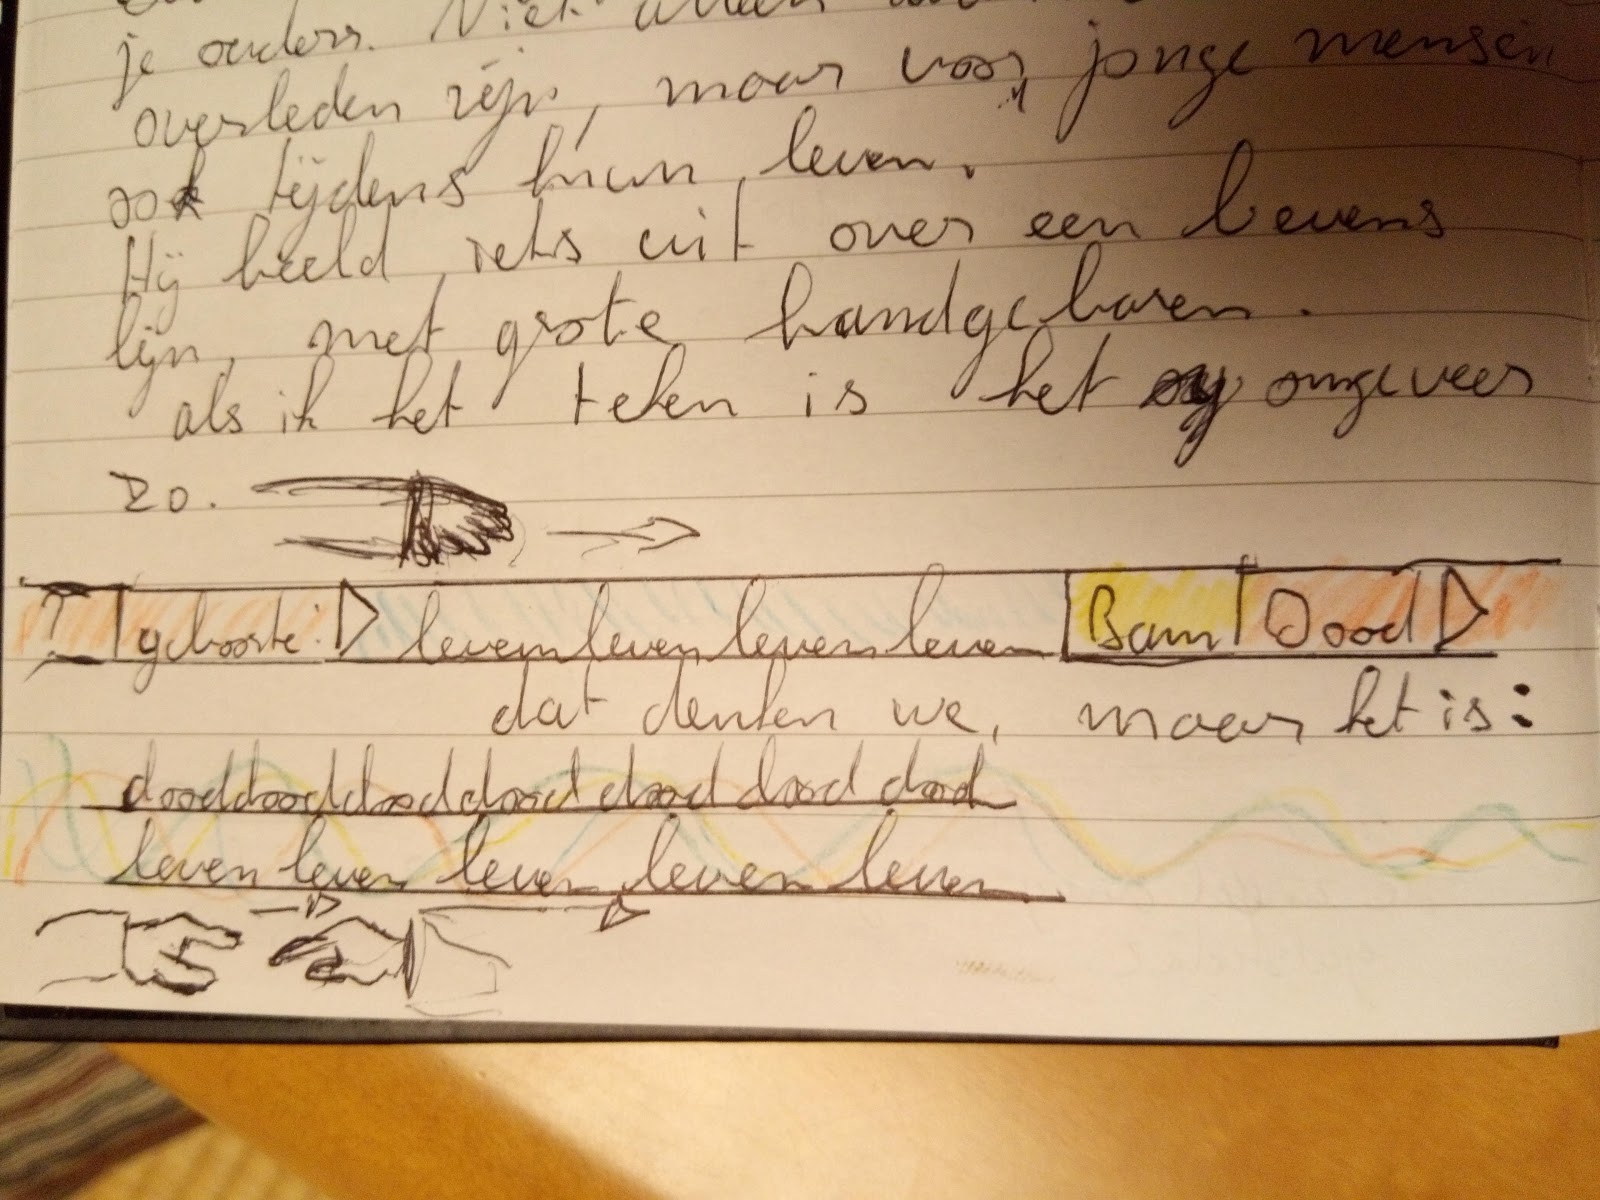 je ouders. Niet alleen
overleden zijn, maar voor jonge mensen
ook tijdens hun leven.
Hij beeld iets uit over een levens
lijn, met grote handgebaren.
als ik het teken is het ongeveer
zo.
? geboorte levenlevenlevenleven Bam Dood
dat denken we, maar het is:
dooddooddooddood dood dood dood
leven leven leven leven leven